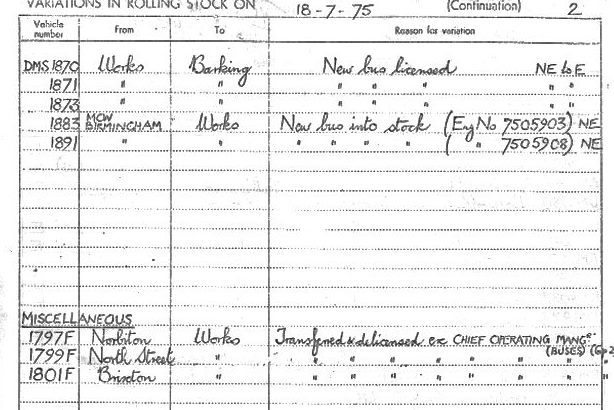 VARIATIONS IN ROLLING STOCK ON 18-7-75 (Continuation) 2
Vehicle number From To Reason for variation
DMS 1870 Works Barking New bus licensed NE to E
1871 " " " " " " "
1873 " " " " " " "
1883 MCW BIRMINGHAM Works New bus into stock (Eng No 7505903) NE
1891 " " " " " " ( " 7505908) NE
MISCELLANEOUS
1797F Norbiton Works Transferred & delicensed ex CHIEF OPERATING MANGR
(BUSES) (Gp2
1799F North Street " " " " " " " "
1801F Brixton " " " " " " " " "